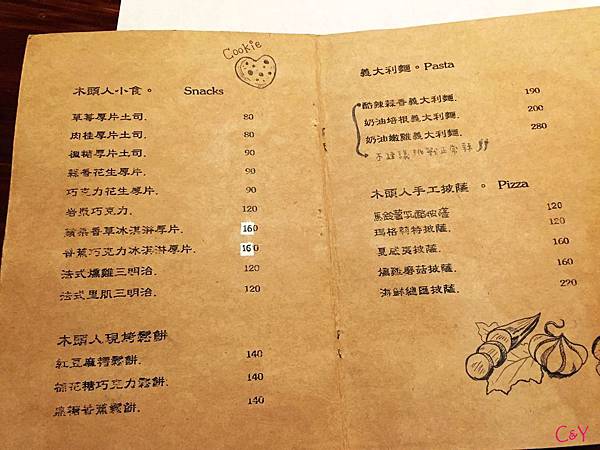 Cookie
木頭人小食。 Snacks
草莓厚片土司. 80
肉桂厚片土司. 80
楓糖厚片土司. 90
蒜香花生厚片. 90
巧克力花生厚片. 90
岩漿巧克力. 120
蘋果香草冰淇淋厚片. 160
香蕉巧克力冰淇淋厚片. 160
法式燻雞三明治. 120
法式里肌三明治. 120
木頭人現烤鬆餅
紅豆麻糬鬆餅. 140
棉花糖巧克力鬆餅. 140
黑糖香蕉鬆餅. 140
義大利麵。Pasta
酷辣蒜香義大利麵. 190
奶油培根義大利麵. 200
奶油嫩雞義大利麵. 280
木頭人手工披薩 。 Pizza
馬鈴薯乳酪披薩 120
瑪格莉特披薩. 120
夏威夷披薩. 160
燻雞蘑菇披薩. 160
海鮮總匯披薩. 220
C&Y